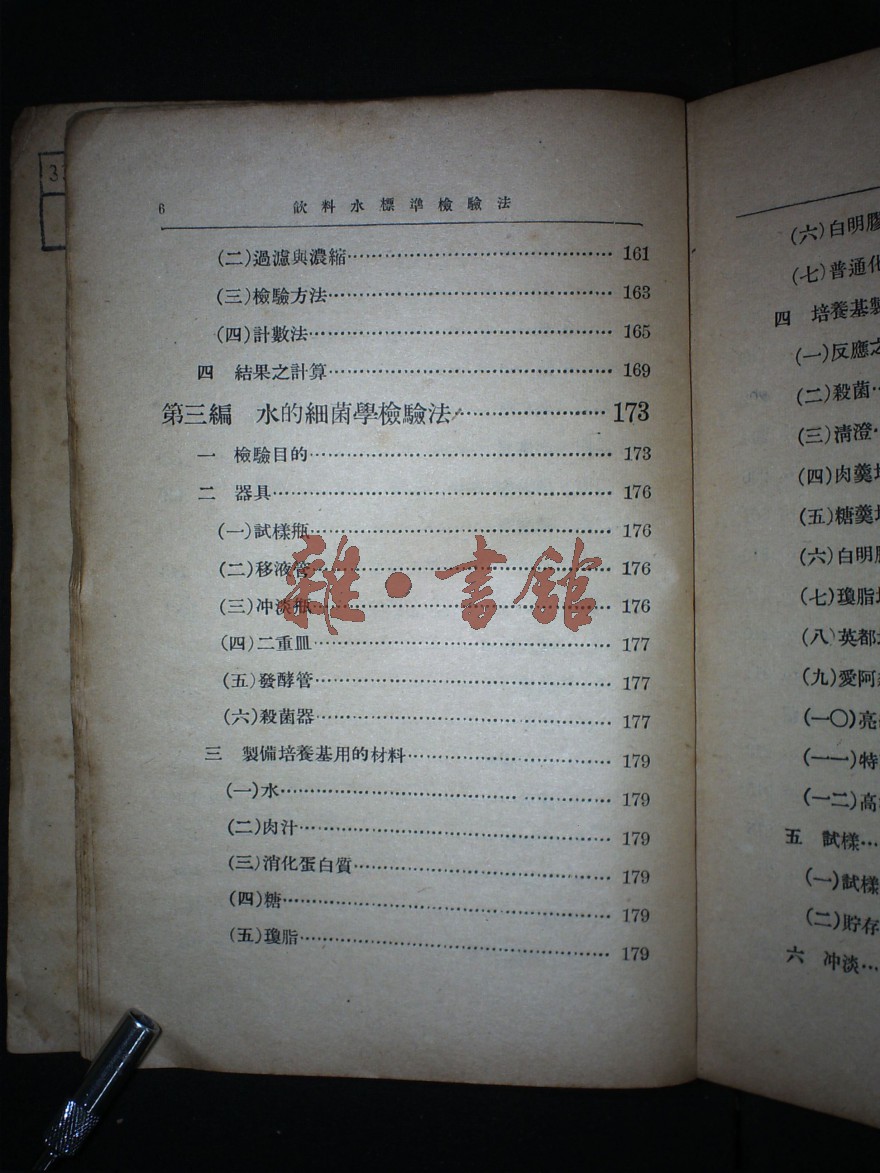 6 飲料水標準檢驗法
(二)過濾與濃縮 161
(三)檢驗方法 163
(四)計數法 165
四 結果之計算 169
第三編 水的細菌學檢驗法 173
一 檢驗目的 173
二 器具 176
(一)試樣瓶 176
(二)移液管 176
(三)冲淡瓶 176
(四)二重皿 177
(五)發酵管 177
(六)殺菌器 177
三 製備培養基用的材料 179
(一)水 179
(二)肉汁 179
(三)消化蛋白質 179
(四)糖 179
(五)瓊脂 179
雜·書館
(六)白明膠
(七)普通化
四 培養基製
(一)反應之
(二)殺菌
(三)清澄
(四)肉羹培
(五)糖羹培
(六)白明膠
(七)瓊脂培
(八)英都
(九)愛阿
(一〇)亮
(一一)特
(一二)高
五 試樣
(一)試樣
(二)貯存
六 冲淡